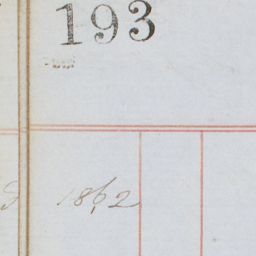 193
1862